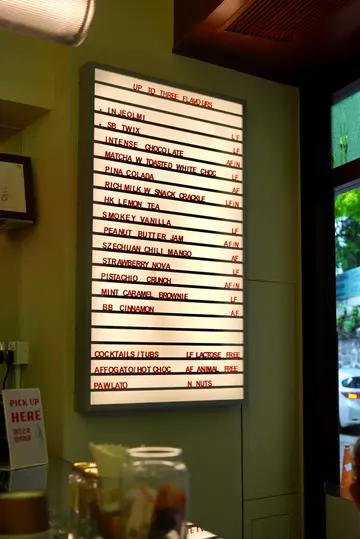 UP TO THREE FLAVOURS
INJEOLMI LF
SB TWIX LF
INTENSE CHOCOLATE AF/N
MATCHA W TOASTED WHITE CHOC LF
PINA COLADA AF
RICH MILK W SNACK CRACKLE LF/N
HK LEMON TEA AF
SMOKEY VANILLA LF
PEANUT BUTTER JAM AF/N
SZECHUAN CHILI MANGO AF
STRAWBERRY NOVA LF
PISTACHIO CRUNCH AF/N
MINT CARAMEL BROWNIE LF
BB CINNAMON AF
COCKTAILS/TUBS LF LACTOSE FREE
AFFOGATO/HOT CHOC AF ANIMAL FREE
PAWLATO N NUTS
PICK UP
HERE